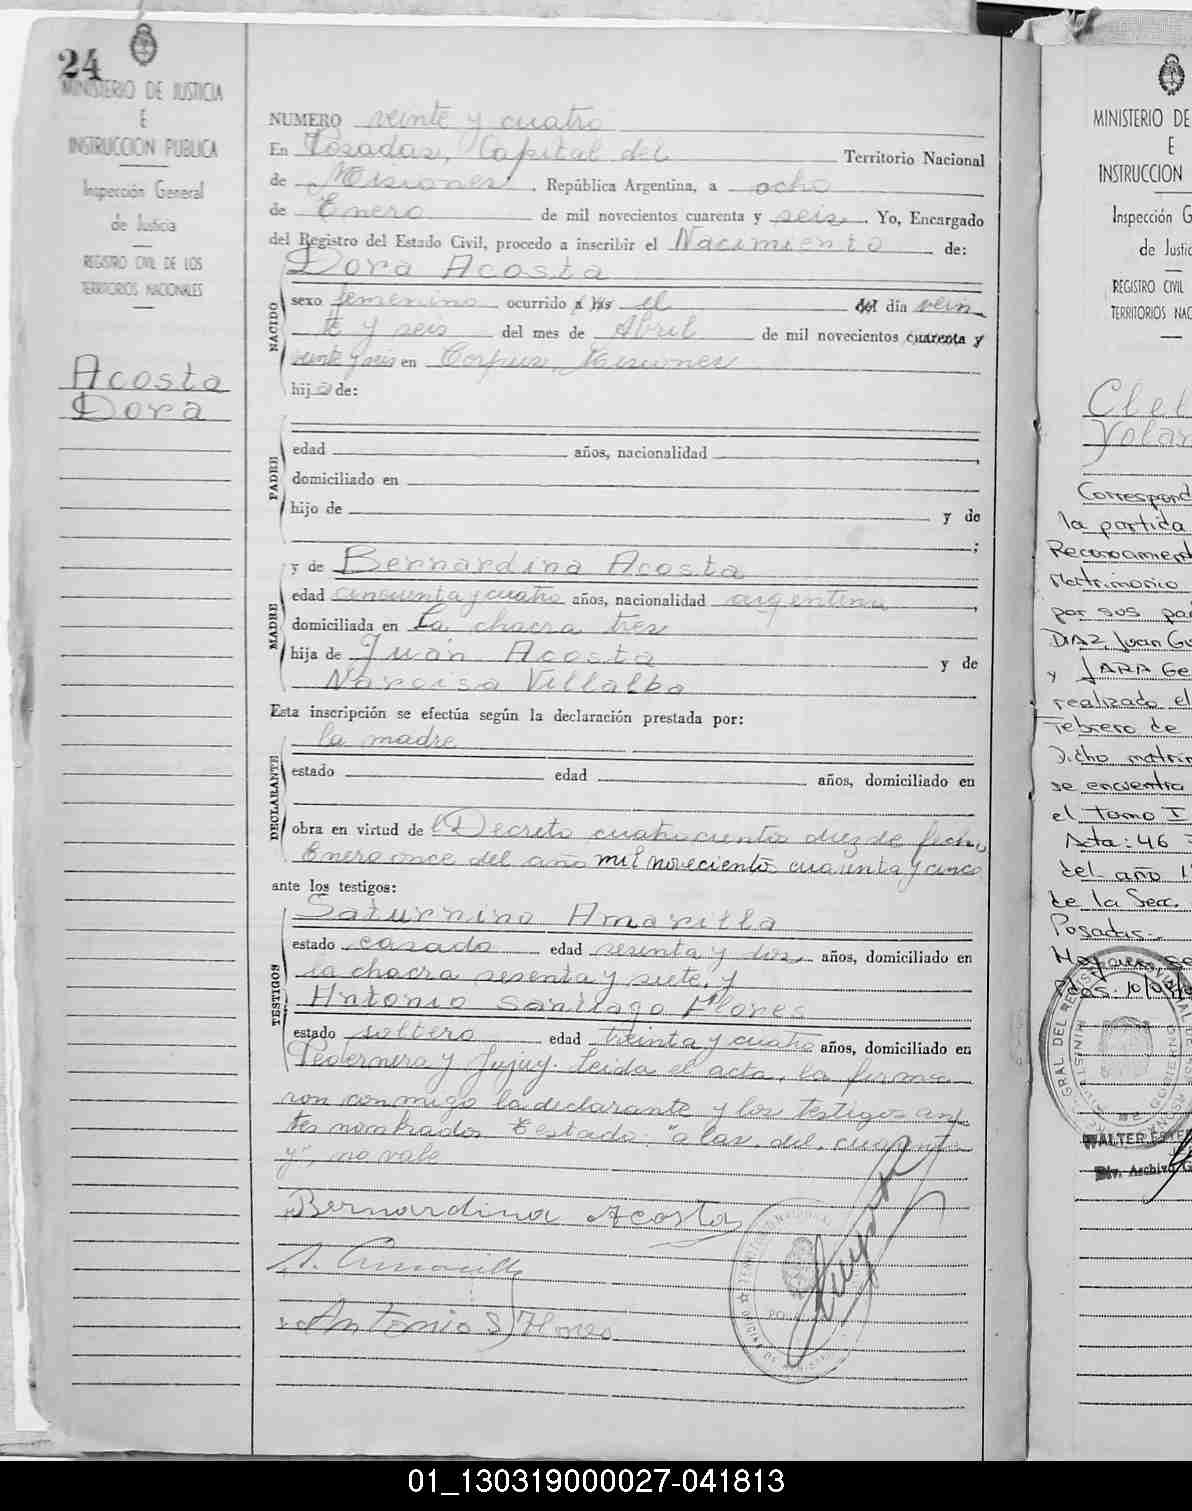 24
MINISTERIO DE JUSTICIA
E
INSTRUCCION PUBLICA
Inspección General
de Justicia
REGISTRO CIVIL DE LOS
TERRITORIOS NACIONALES
Acosta
Dora
NUMERO veinte y cuatro
En Posadas, Capital del Territorio Nacional
de Misiones, República Argentina, a ocho
de Enero de mil novecientos cuarenta y seis Yo, Encargado
del Registro del Estado Civil, procedo a inscribir el Nacimiento de:
NACIDO
Dora Acosta
sexo femenino ocurrido a las el del día vein
te y seis del mes de Abril de mil novecientos cuarenta y
veinte y seis en Corpus, Misiones
hija de:
PADRE
edad años, nacionalidad
domiciliado en
hijo de y de
;
MADRE
y de Bernardina Acosta
edad cincuenta y cuatro años, nacionalidad argentina
domiciliada en La chacra tres
hija de Juan Acosta y de
Narcisa Villalba
Esta inscripción se efectúa según la declaración prestada por:
DECLARANTE
la madre
estado edad años, domiciliado en
obra en virtud del Decreto cuatrocientos diez de fecha
Enero once del año mil novecientos cuarenta y cinco
ante los testigos:
TESTIGOS
Saturnino Amarilla
estado casado edad sesenta y dos años, domiciliado en
la chacra sesenta y siete, y
Antonio Santiago Flores
estado soltero edad treinta y cuatro años, domiciliado en
Pedernera y Jujuy. Leida el acta, la firma
ron conmigo la declarante y los testigos an
tes nombrados. Testado: "a las, del, cuarenta
y", no vale
Bernardina Acosta
A. Amarilla
Antonio S. Flores
MINISTERIO DE
E
INSTRUCCION
Inspección G
de Justic
REGISTRO CIVIL
TERRITORIOS NAC
Clel
Yolan
Correspond
la partida
Reconocamient
Matrimonio
por sus pa
DIAZ, Juan Gu
y JARA Ge
realizado el
Febrero de
Dicho matrim
se encuentra
el tomo I
Acta: 46
del año 1
de la Secc.
Posadas.-
WALTER
Div. Archivo G
01_130319000027-041813